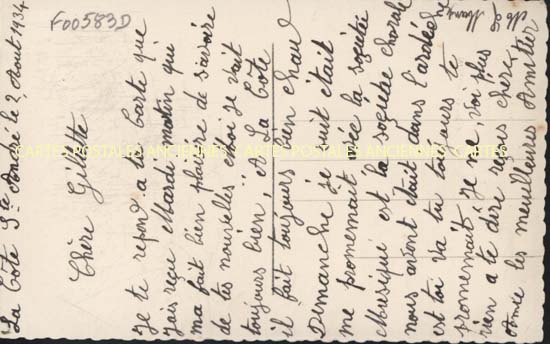 F00583D
La Côte St André le 2 Aout 1934
Chère Gilette
Je te repond a ta Carte que
j'ais reçue Mardi matin qui
ma fait bien plaisire de savoire
de tes nouvelles. Moi je vait
toujours bien et La Côte
il fait toujours bien chau
Dimanche je suit était
me promenait avée la sosiétée
Musique est la sosiétée chorale
nous avont était dans l'ardèche
est toi va tu toujours te
promenait. Je ne voi plus
rien a te dire reçois chère
Amie les meuilleures Amitier
CARTES POSTALES ANCIENNES CARTES POSTALES ANCIENNES CARTES POSTALES ANCIENNES